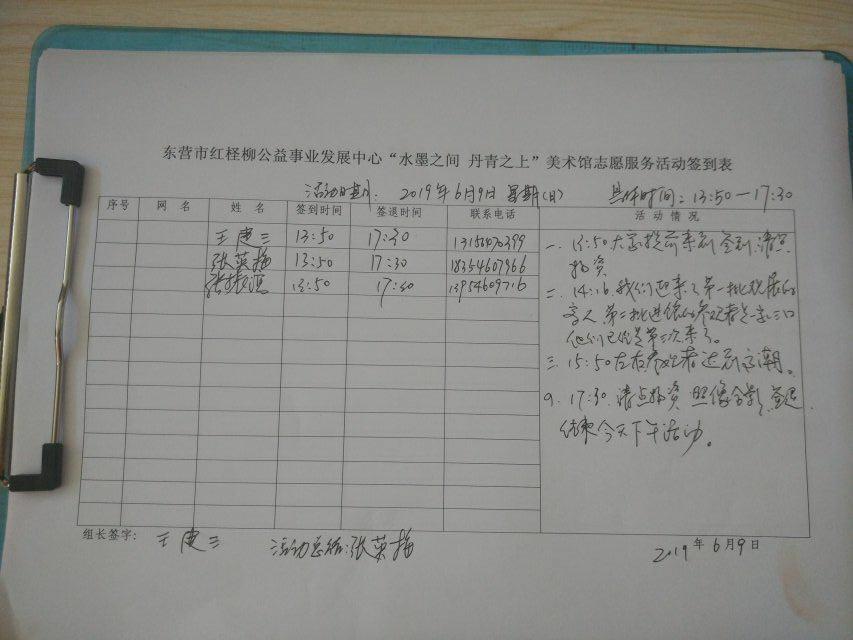 东营市红柽柳公益事业发展中心“水墨之间 丹青之上”美术馆志愿服务活动签到表
活动日期: 2019年6月9日 星期(日) 具体时间: 13:50—17:30
序号 网名 姓名 签到时间 签退时间 联系电话 活动情况
王建三 13:50 17:30
张英梅 13:50 17:30 18354607966
张振 13:50 17:30
一. 13:50大家提前来到签到.清点
物资
二. 14:16.我们迎来了第一批观展的
客人.第二批进馆的参观者是一家三口
他们已经是第二次来了。
三. 15:50左右参观者达到高潮。
17:30.清点物资 照像合影.签退.
结束今天下午活动。
组长签字: 王建三 活动总结:张英梅
2019年6月9日